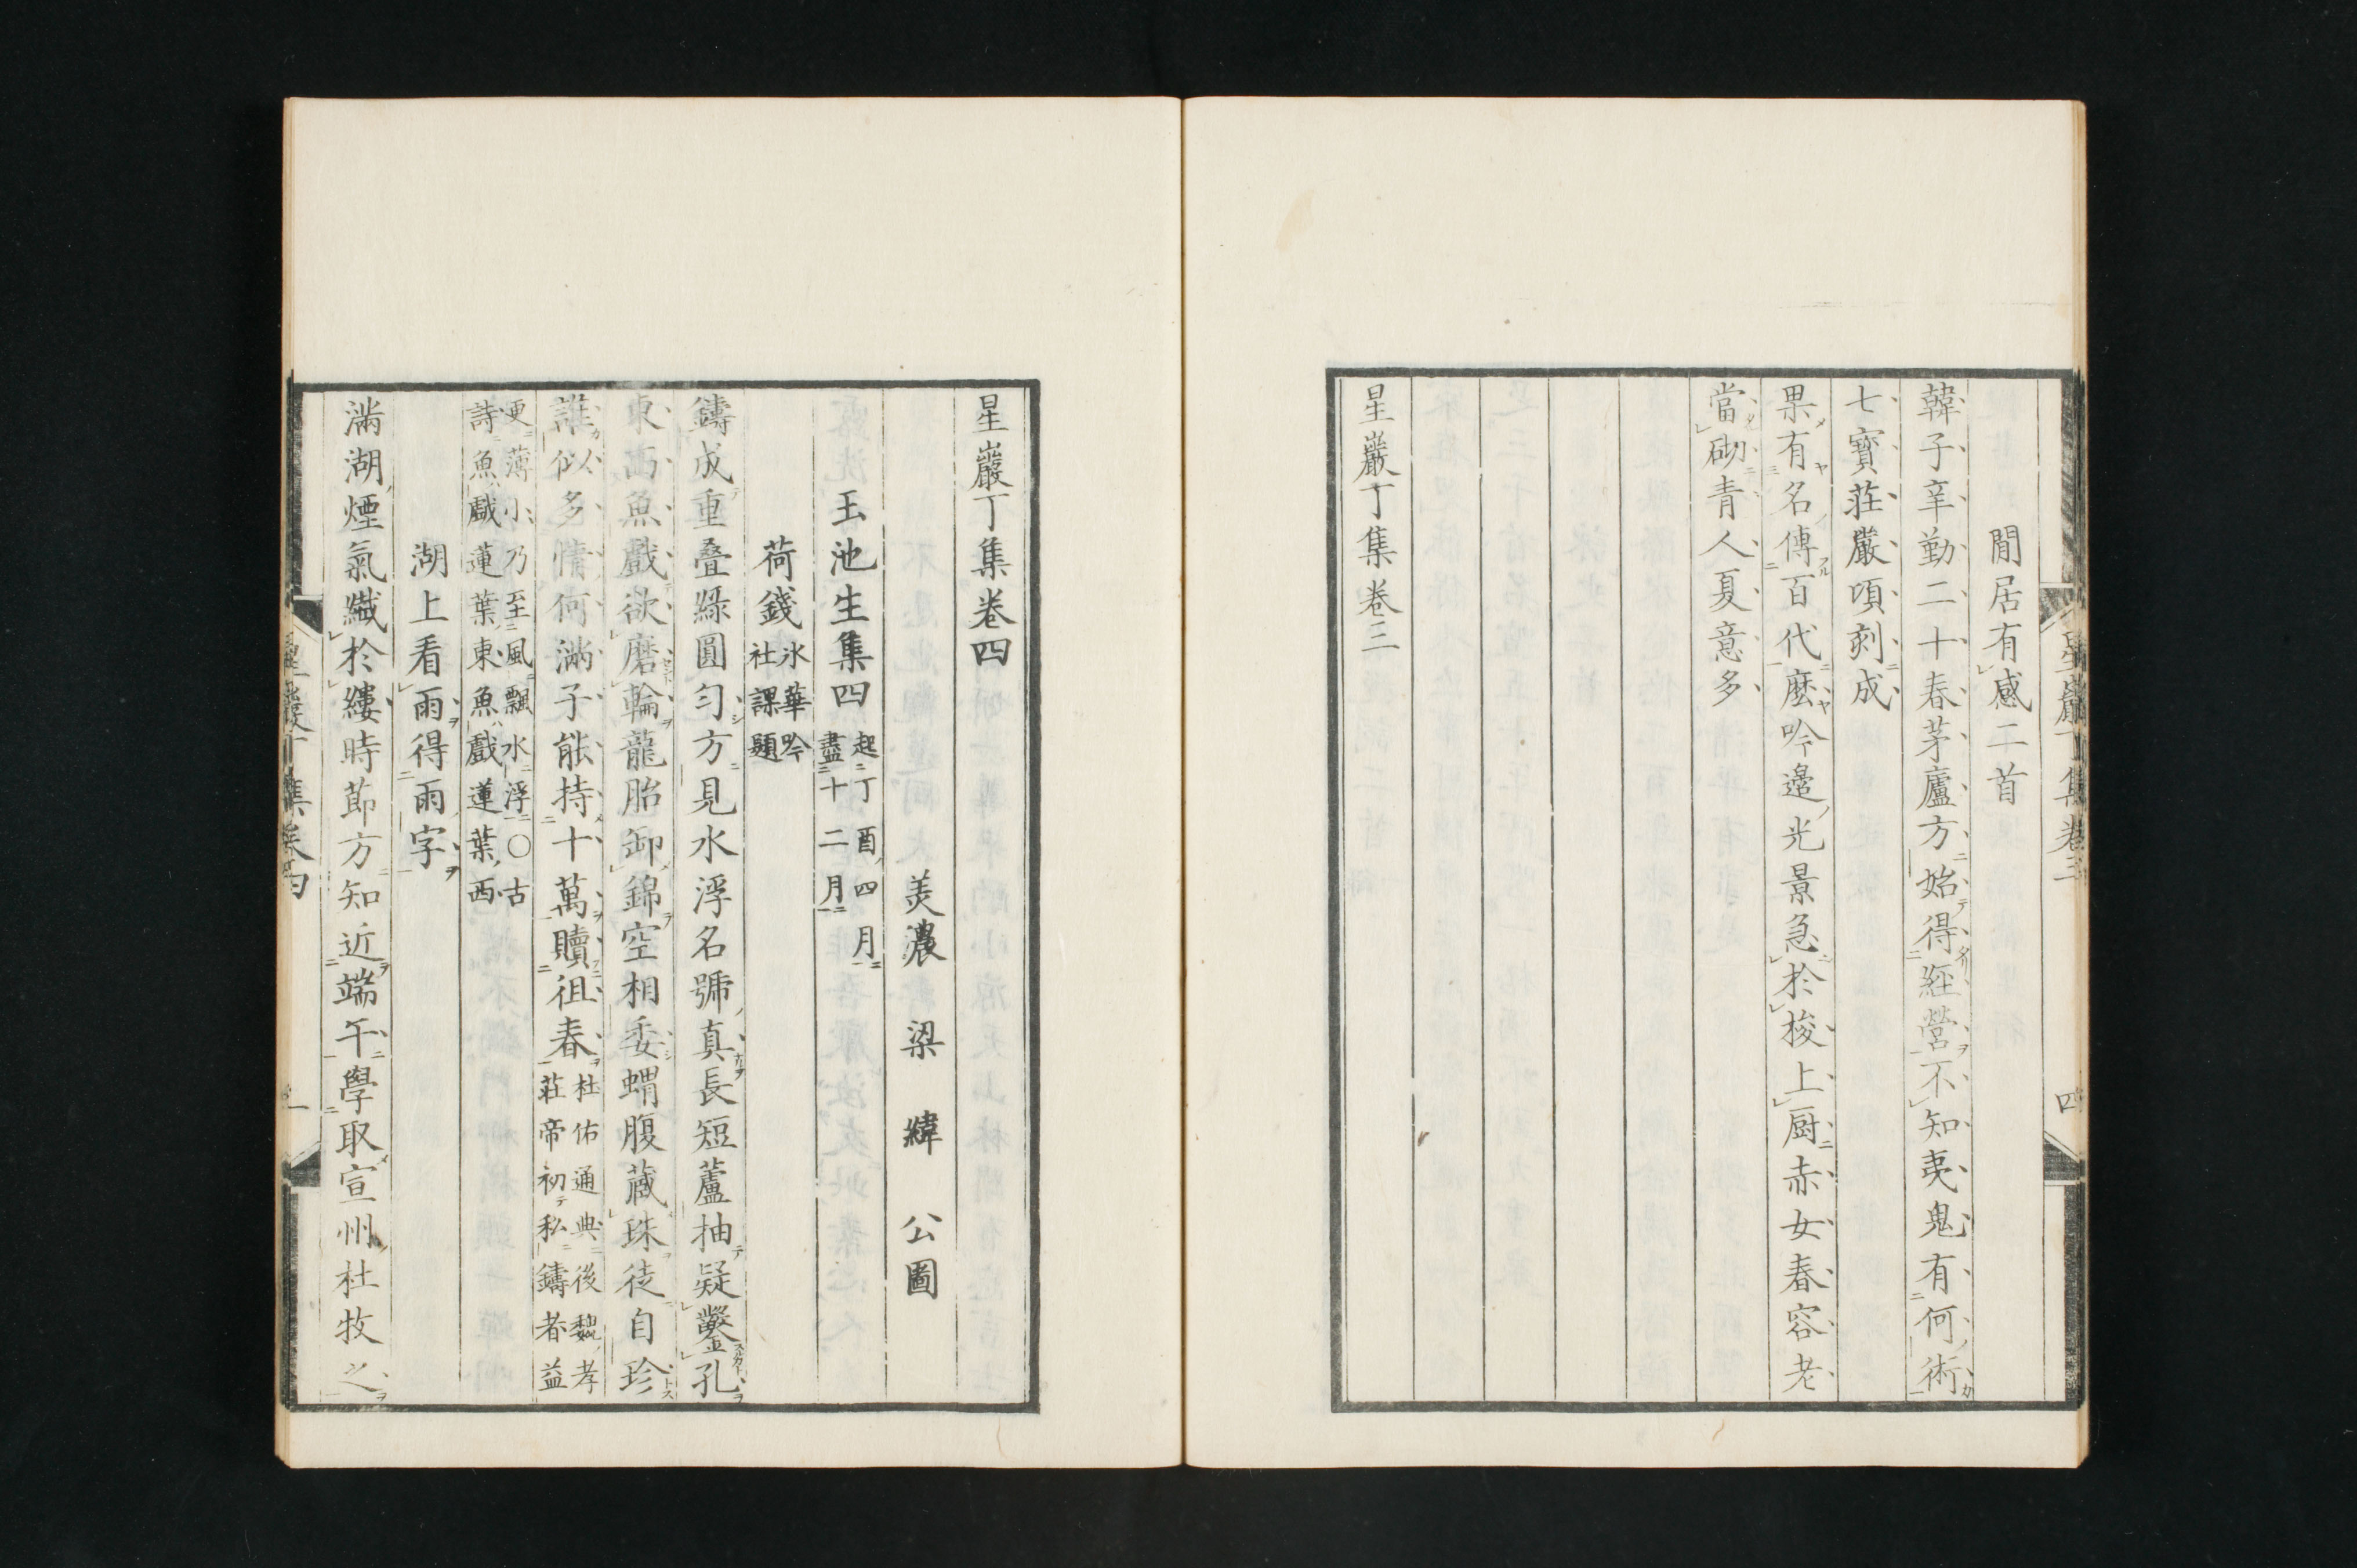 星巖丁集卷三
四
閒居有感二首
韓子辛勤二十春茅廬方始得經營不知夷鬼有何術
七寶莊嚴頃刻成
果有名傳百代麽吟邊光景急於梭上厨赤女春容老
當砌青人夏意多
星巖丁集卷三
星巖丁集卷四
美濃 梁緯 公圖
玉池生集四 起丁酉四月
盡十二月
荷錢 氷華吟
社課題
鑄成重疊綠圓勻方見水浮名號真長短蘆抽疑鑿孔
東西魚戲欲磨輪龍胎卸錦空相委蝟腹藏珠徒自珍
誰似多情何滿子能持十萬贖徂春 杜佑通典後魏孝
莊帝初私鑄者益
更薄小乃至風飄水浮○古
詩魚戲蓮葉東魚戲蓮葉西
湖上看雨得雨字
滿湖煙氣纖於縷時節方知近端午學取宣州杜牧之
星巖丁集卷四
一